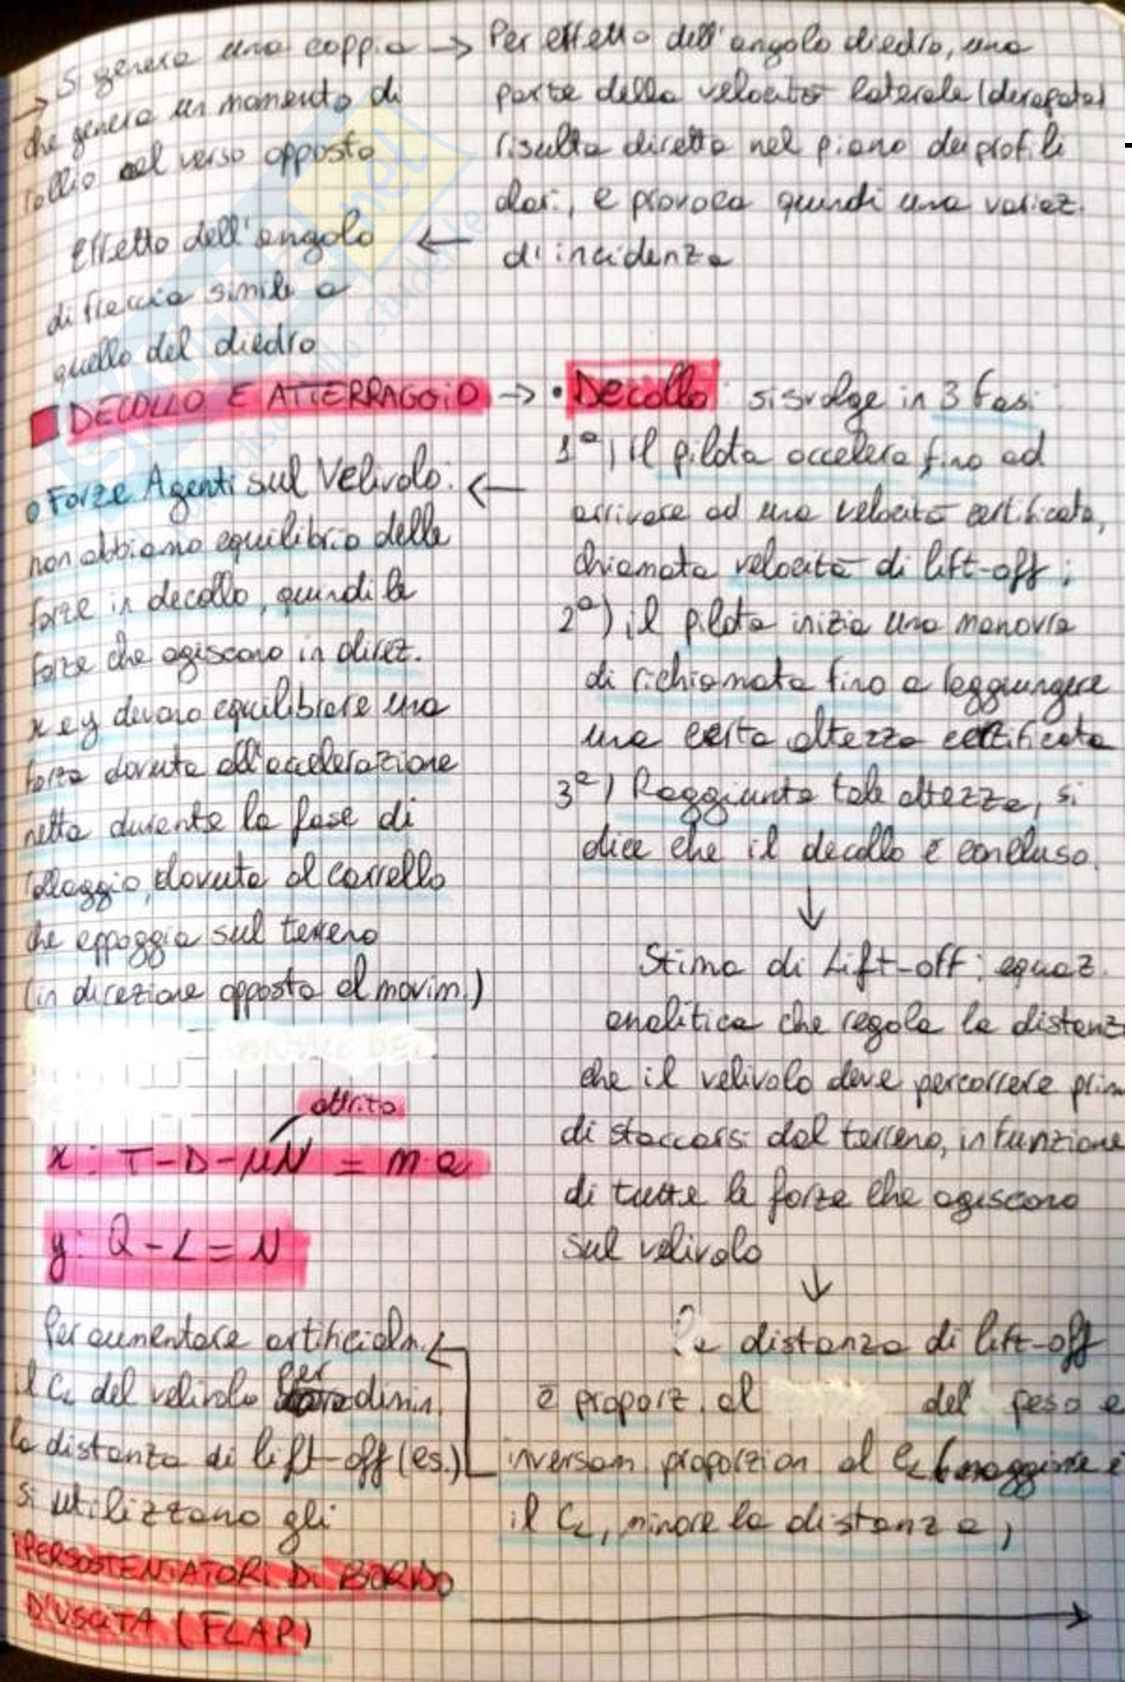 → Si genera una coppia →
che genera un momento di
rollio nel verso opposto
Per effetto dell'angolo diedro, una
parte della velocità laterale (derapata)
risulta diretta nel piano dei profili
alari, e provoca quindi una variaz.
di incidenza
←
Effetto dell'angolo
di freccia simile a
quello del diedro
DECOLLO E ATTERRAGGIO →
• Decollo: si svolge in 3 fasi:
1ª) il pilota accelera fino ad
arrivare ad una velocità certificata,
chiamata velocità di lift-off;
2ª) il pilota inizia una manovra
di richiamata fino a raggiungere
una certa altezza certificata
3ª) Raggiunta tale altezza, si
dice che il decollo è concluso.
↓
Stima di Lift-off: equaz.
analitica che regola la distanz
che il velivolo deve percorrere prim
di staccarsi dal terreno, in funzione
di tutte le forze che agiscono
sul velivolo
↓
distanza di lift-off
è proporz. al del peso e
inversam. proporzion al CL (maggiore è
il CL, minore la distanza)
o Forze Agenti sul Velivolo: ←
non abbiamo equilibrio delle
forze in decollo, quindi le
forze che agiscono in direz.
x e y devono equilibrare una
forza dovuta all'accelerazione
netta durante la fase di
rullaggio, dovuta al carrello
che appoggia sul terreno
(in direzione opposta al movim.)
attrito
x: T-D-μN = m·a
y: Q-L=N
Per aumentare artificialm. ←
il CL del velivolo per dimin.
la distanza di lift-off (es.)
si utilizzano gli
IPERSOSTENTATORI DI BORDO
D'USCITA (FLAP) →